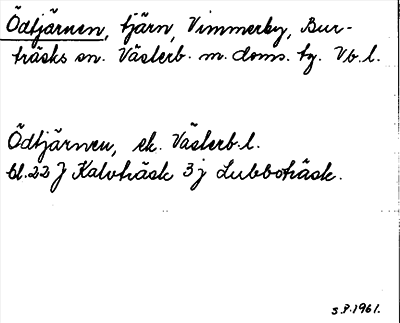 Ödtjärnen, tjärn, Vimmerby, Bur-
träsks sn. Västerb. m. doms. tg. Vb. l.
Ödtjärnen, ek. Västerb. l.
bl. 22 J Kalvträsk 3 j Lubboträsk.
S.P. 1961.